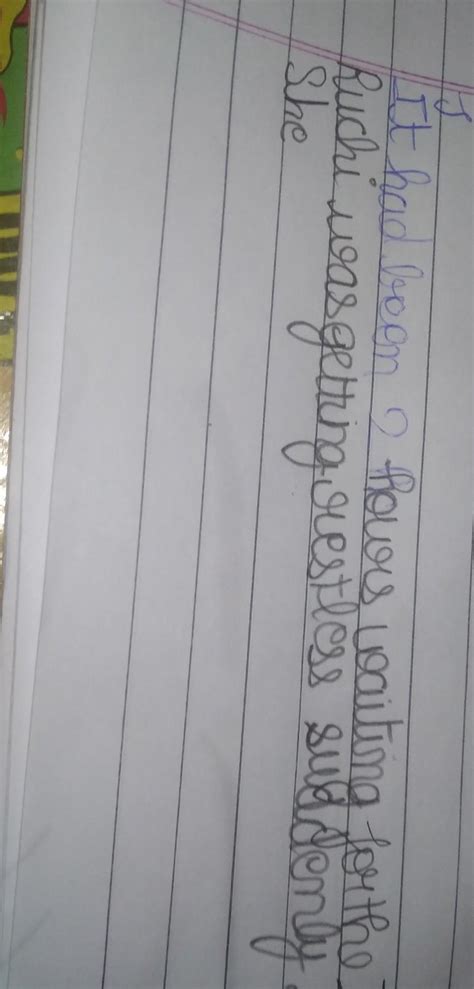 It had been 2 hours waiting for the
Ruchi was getting restless suddenly
She